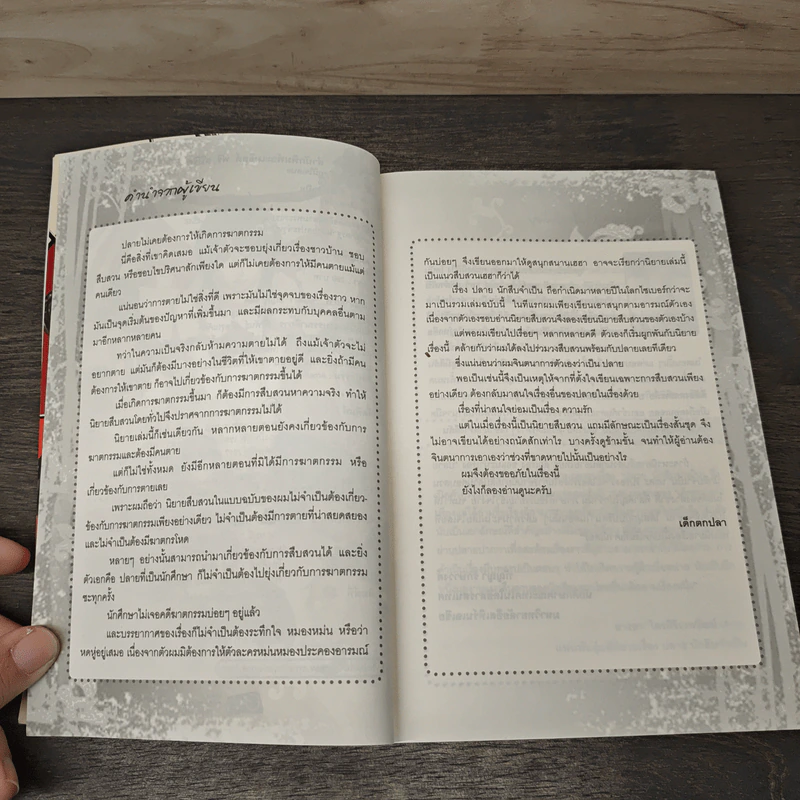 คำนำจากผู้เขียน
ปลายไม่เคยต้องการให้เกิดการฆาตกรรม
นี่คือสิ่งที่เขาคิดเสมอ แม้เจ้าตัวจะชอบยุ่งเกี่ยวเรื่องชาวบ้าน ชอบ
สืบสวน หรือชอบไขปริศนาสักเพียงใด แต่ก็ไม่เคยต้องการให้มีคนตายแม้แต่
คนเดียว
แน่นอนว่าการตายไม่ใช่สิ่งที่ดี เพราะมันไม่ใช่จุดจบของเรื่องราว หาก
มันเป็นจุดเริ่มต้นของปัญหาที่เพิ่มขึ้นมา และมีผลกระทบกับบุคคลอื่นตาม
มาอีกหลากหลายคน
ทว่าในความเป็นจริงกลับห้ามความตายไม่ได้ ถึงแม้เจ้าตัวจะไม่
อยากตาย แต่มันก็ต้องมีบางอย่างในชีวิตที่ให้เขาตายอยู่ดี และยิ่งถ้ามีคน
ต้องการให้เขาตาย ก็อาจไปเกี่ยวข้องกับการฆาตกรรมขึ้นได้
เมื่อเกิดการฆาตกรรมขึ้นมา ก็ต้องมีการสืบสวนหาความจริง ทำให้
นิยายสืบสวนโดยทั่วไปจึงปราศจากการฆาตกรรมไม่ได้
นิยายเล่มนี้ก็เช่นเดียวกัน หลากหลายตอนยังคงเกี่ยวข้องกับการ
ฆาตกรรมและต้องมีคนตาย
แต่ก็ไม่ใช่ทั้งหมด ยังมีอีกหลายตอนที่มิได้มีการฆาตกรรม หรือ
เกี่ยวข้องกับการตายเลย
เพราะผมถือว่า นิยายสืบสวนในแบบฉบับของผมไม่จำเป็นต้องเกี่ยว-
ข้องกับการฆาตกรรมเพียงอย่างเดียว ไม่จำเป็นต้องมีการตายที่น่าสยดสยอง
และไม่จำเป็นต้องมีฆาตกรโหด
หลายๆ อย่างนั้นสามารถนำมาเกี่ยวข้องกับการสืบสวนได้ และยิ่ง
ตัวเอกคือ ปลายที่เป็นนักศึกษา ก็ไม่จำเป็นต้องไปยุ่งเกี่ยวกับการฆาตกรรม
ซะทุกครั้ง
นักศึกษาไม่เจอคดีฆาตกรรมบ่อยๆ อยู่แล้ว
และบรรยากาศของเรื่องก็ไม่จำเป็นต้องระทึกใจ หมองหม่น หรือว่า
หดหู่อยู่เสมอ เนื่องจากตัวผมมิต้องการให้ตัวละครหม่นหมองประคองอารมณ์
กันบ่อยๆ จึงเขียนออกมาให้ดูสนุกสนานเฮฮา อาจจะเรียกว่านิยายเล่มนี้
เป็นแนวสืบสวนเฮฮาก็ว่าได้
เรื่อง ปลาย นักสืบจำเป็น ถือกำเนิดมาหลายปีในโลกไซเบอร์กว่าจะ
มาเป็นรวมเล่มฉบับนี้ ในทีแรกผมเพียงเขียนเอาสนุกตามอารมณ์ตัวเอง
เนื่องจากตัวเองชอบอ่านนิยายสืบสวนจึงลองเขียนนิยายสืบสวนของตัวเองบ้าง
แต่พอผมเขียนไปเรื่อยๆ หลากหลายคดี ตัวเองก็เริ่มผูกพันกับนิยาย
เรื่องนี้ คล้ายกับว่าผมได้ลงไปร่วมวงสืบสวนพร้อมกับปลายเลยทีเดียว
ซึ่งแน่นอนว่าผมจินตนาการตัวเองว่าเป็น ปลาย
พอเป็นเช่นนี้จึงเป็นเหตุให้จากที่ตั้งใจเขียนเฉพาะการสืบสวนเพียง
อย่างเดียว ต้องกลับมาสนใจเรื่องอื่นของปลายในเรื่องด้วย
เรื่องที่น่าสนใจย่อมเป็นเรื่อง ความรัก
แต่ในเมื่อเรื่องนี้เป็นนิยายสืบสวน แถมมีลักษณะเป็นเรื่องสั้นชุด จึง
ไม่อาจเขียนได้อย่างถนัดสักเท่าไร บางครั้งดูข้ามขั้น จนทำให้ผู้อ่านต้อง
จินตนาการเอาเองว่าช่วงที่ขาดหายไปนั้นเป็นอย่างไร
ผมจึงต้องขออภัยในเรื่องนี้
ยังไงก็ลองอ่านดูนะครับ
เด็กตกปลา